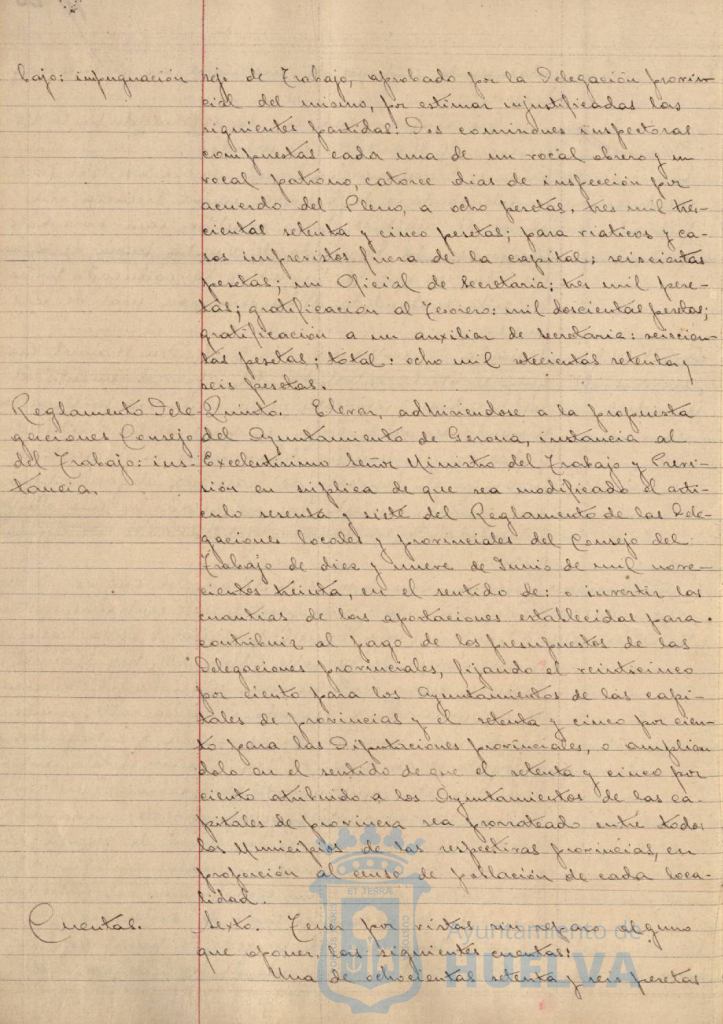 bajo: impugnación
sejo de Trabajo, aprobado por la Delegación provin-
cial del mismo, por estimar injustificadas las
siguientes partidas: Dos comisiones inspectoras
compuestas cada una de un vocal obrero y un
vocal patrono, catorce dias de inspección por
acuerdo del Pleno, a ocho pesetas, tres mil tres-
cientas setenta y cinco pesetas; para viaticos y ca-
sos imprevistos fuera de la capital: seiscientas
pesetas; un Oficial de Secretaria: tres mil pese-
tas; gratificación al Tesorero: mil doscientas pesetas;
gratificación a un auxiliar de Secretaria: seiscien-
tas pesetas; total: ocho mil setecientas setenta y
seis pesetas.
Reglamento Dele-
gaciones Consejo
del Trabajo: ins-
tancia.
Quinto. Elevar, adhiriendose a la propuesta
del Ayuntamiento de Gerona, instancia al
Excelentísimo Señor Ministro del Trabajo y Previ-
sión en súplica de que sea modificado el arti-
culo sesenta y siete del Reglamento de las Dele-
gaciones locales y provinciales del Consejo del
Trabajo de diez y nueve de Junio de mil nove-
cientos treinta, en el sentido de: o invertir las
cuantias de las aportaciones establecidas para
contribuir al pago de los presupuestos de las
Delegaciones provinciales, fijando el veinticinco
por ciento para los Ayuntamientos de las capi-
tales de provincias y el setenta y cinco por cien-
to para las Diputaciones provinciales, o amplian
dolo en el sentido de que el setenta y cinco por
ciento atribuido a los Ayuntamientos de las ca-
pitales de provincia sea prorrateado entre todos
los Municipios de las respectivas provincias, en
proporción al censo de población de cada loca-
lidad.
Cuentas.
Sexto. Tener por vistas sin reparo alguno
que oponer, las siguientes cuentas:
Una de ochocientas setenta y seis pesetas
ET TERRÆ
Ayuntamiento de
HUELVA